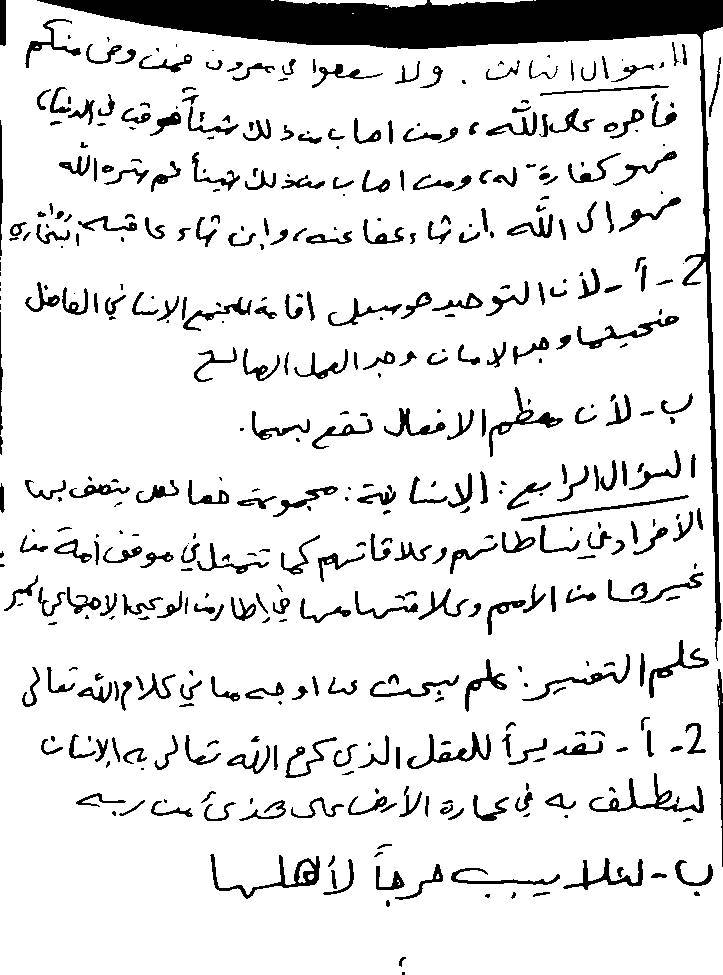 السؤال الثالث . ولا تعصوا في معروف فمن وفى منكم
فأجره على الله، ومن اصاب من ذلك شيئاً فعوقب في الدنيا،
فهو كفارة له، ومن اصاب من ذلك شيئاً ثم ستره الله
فهو إلى الله ان شاء عفا عنه، وإن شاء عاقبه. رواه البخاري
2- أ - لأن التوحيد هو سبيل اقامة المجتمع الإنساني الفاضل
فحيثما وجد الإيمان وجد العمل الصالح
ب - لأن معظم الافعال تقع بهما.
السؤال الرابع : الإنسانية : مجموعة خصائص يتصف بها
الأفراد في نشاطاتهم وعلاقاتهم كما تتمثل في موقف أمة من
غيرها من الأمم وعلاقتها معها في إطار من الوعي الاجتماعي المميز
علم التفسير : علم يبحث عن اوجه معاني كلام الله تعالى
2- أ - تقديراً للعقل الذي كرم الله تعالى به الإنسان
لينطلق به في عمارة الأرض على هدىً من ربه
ب - لئلا يسبب حرجاً لأهلها